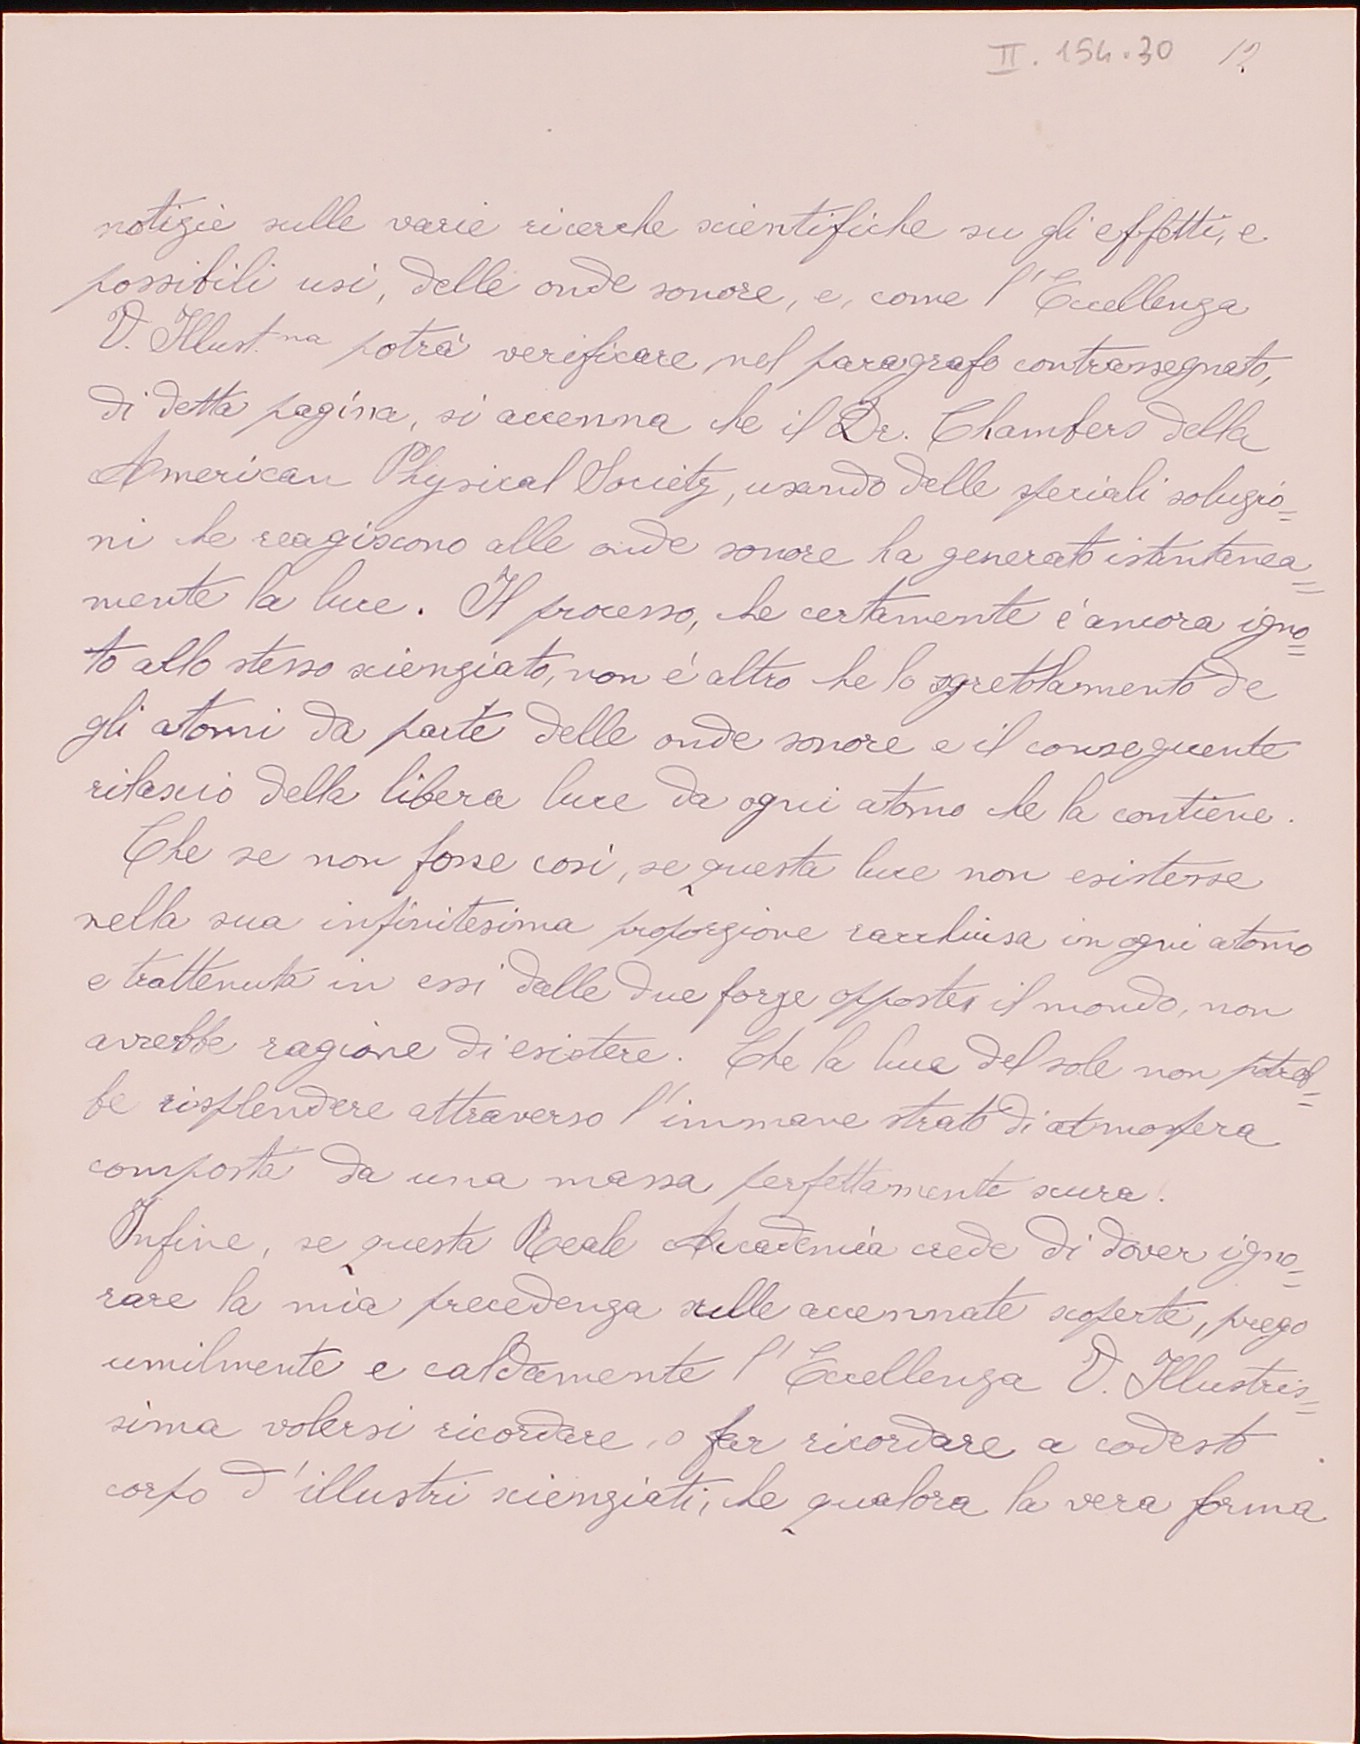 II. 154.30 12
notizie sulle varie ricerche scientifiche su gli effetti, e
possibili usi, delle onde sonore, e, come l'Eccellenza
V. Illust.ma potrà verificare, nel paragrafo contrassegnato,
di detta pagina, si accenna che il Dr. Chambers della
American Physical Society, usando delle speciali soluzio=
ni che reagiscono alle onde sonore ha generato istantanea=
mente la luce. Il processo, che certamente è ancora igno=
to allo stesso scienziato, non è altro che lo sgretolamento de
gli atomi da parte delle onde sonore e il conseguente
rilascio della libera luce da ogni atomo che la contiene.
Che se non fosse così, se questa luce non esistesse
nella sua infinitesima proporzione racchiusa in ogni atomo
e trattenuta in essi dalle due forze opposte, il mondo, non
avrebbe ragione di esistere. Che la luce del sole non potreb=
be risplendere attraverso l'immane strato di atmosfera
composta da una massa perfettamente scura!
Infine, se questa Reale Accademia crede di dover igno=
rare la mia precedenza sulle accennate scoperte, prego
umilmente e caldamente l'Eccellenza V. Illustris=
sima volersi ricordare, o far ricordare a codesto
corpo d'illustri scienziati, che qualora la vera forma